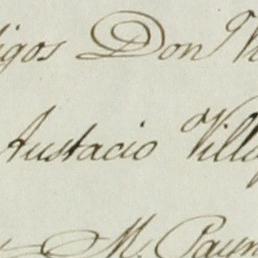 igos Don V
Austacio Villa
M. Payn